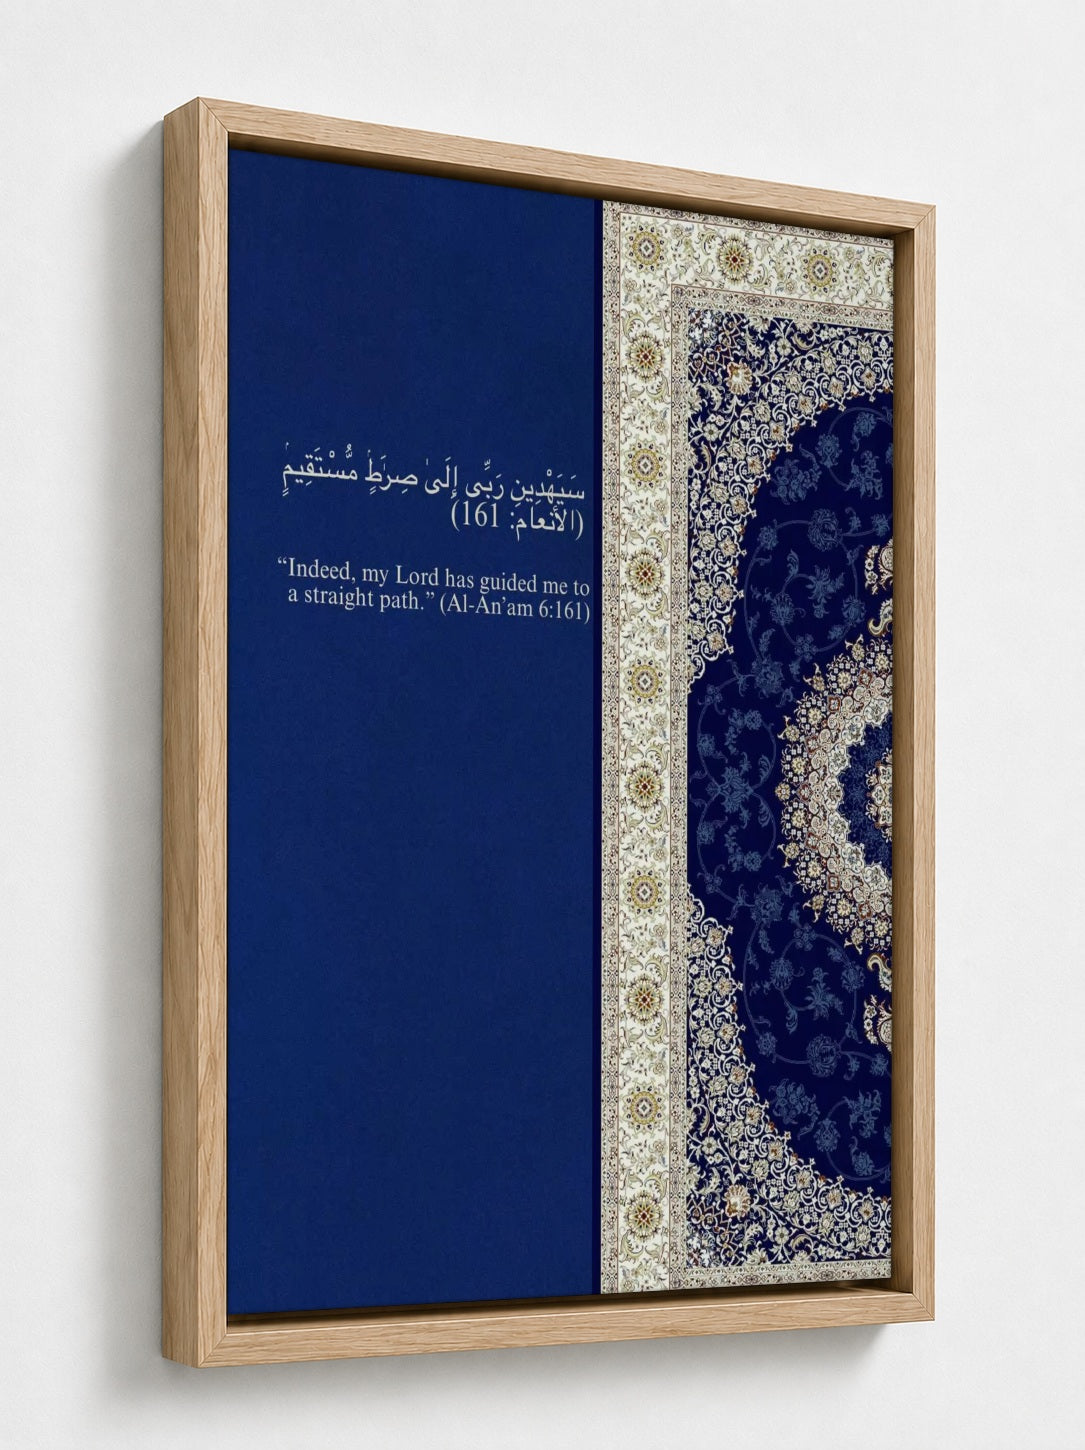 سَيَهْدِينِ رَبِّى إِلَىٰ صِرَٰطٍ مُّسْتَقِيمٍ
(الأنعام: 161)
“Indeed, my Lord has guided me to
a straight path.” (Al-An’am 6:161)